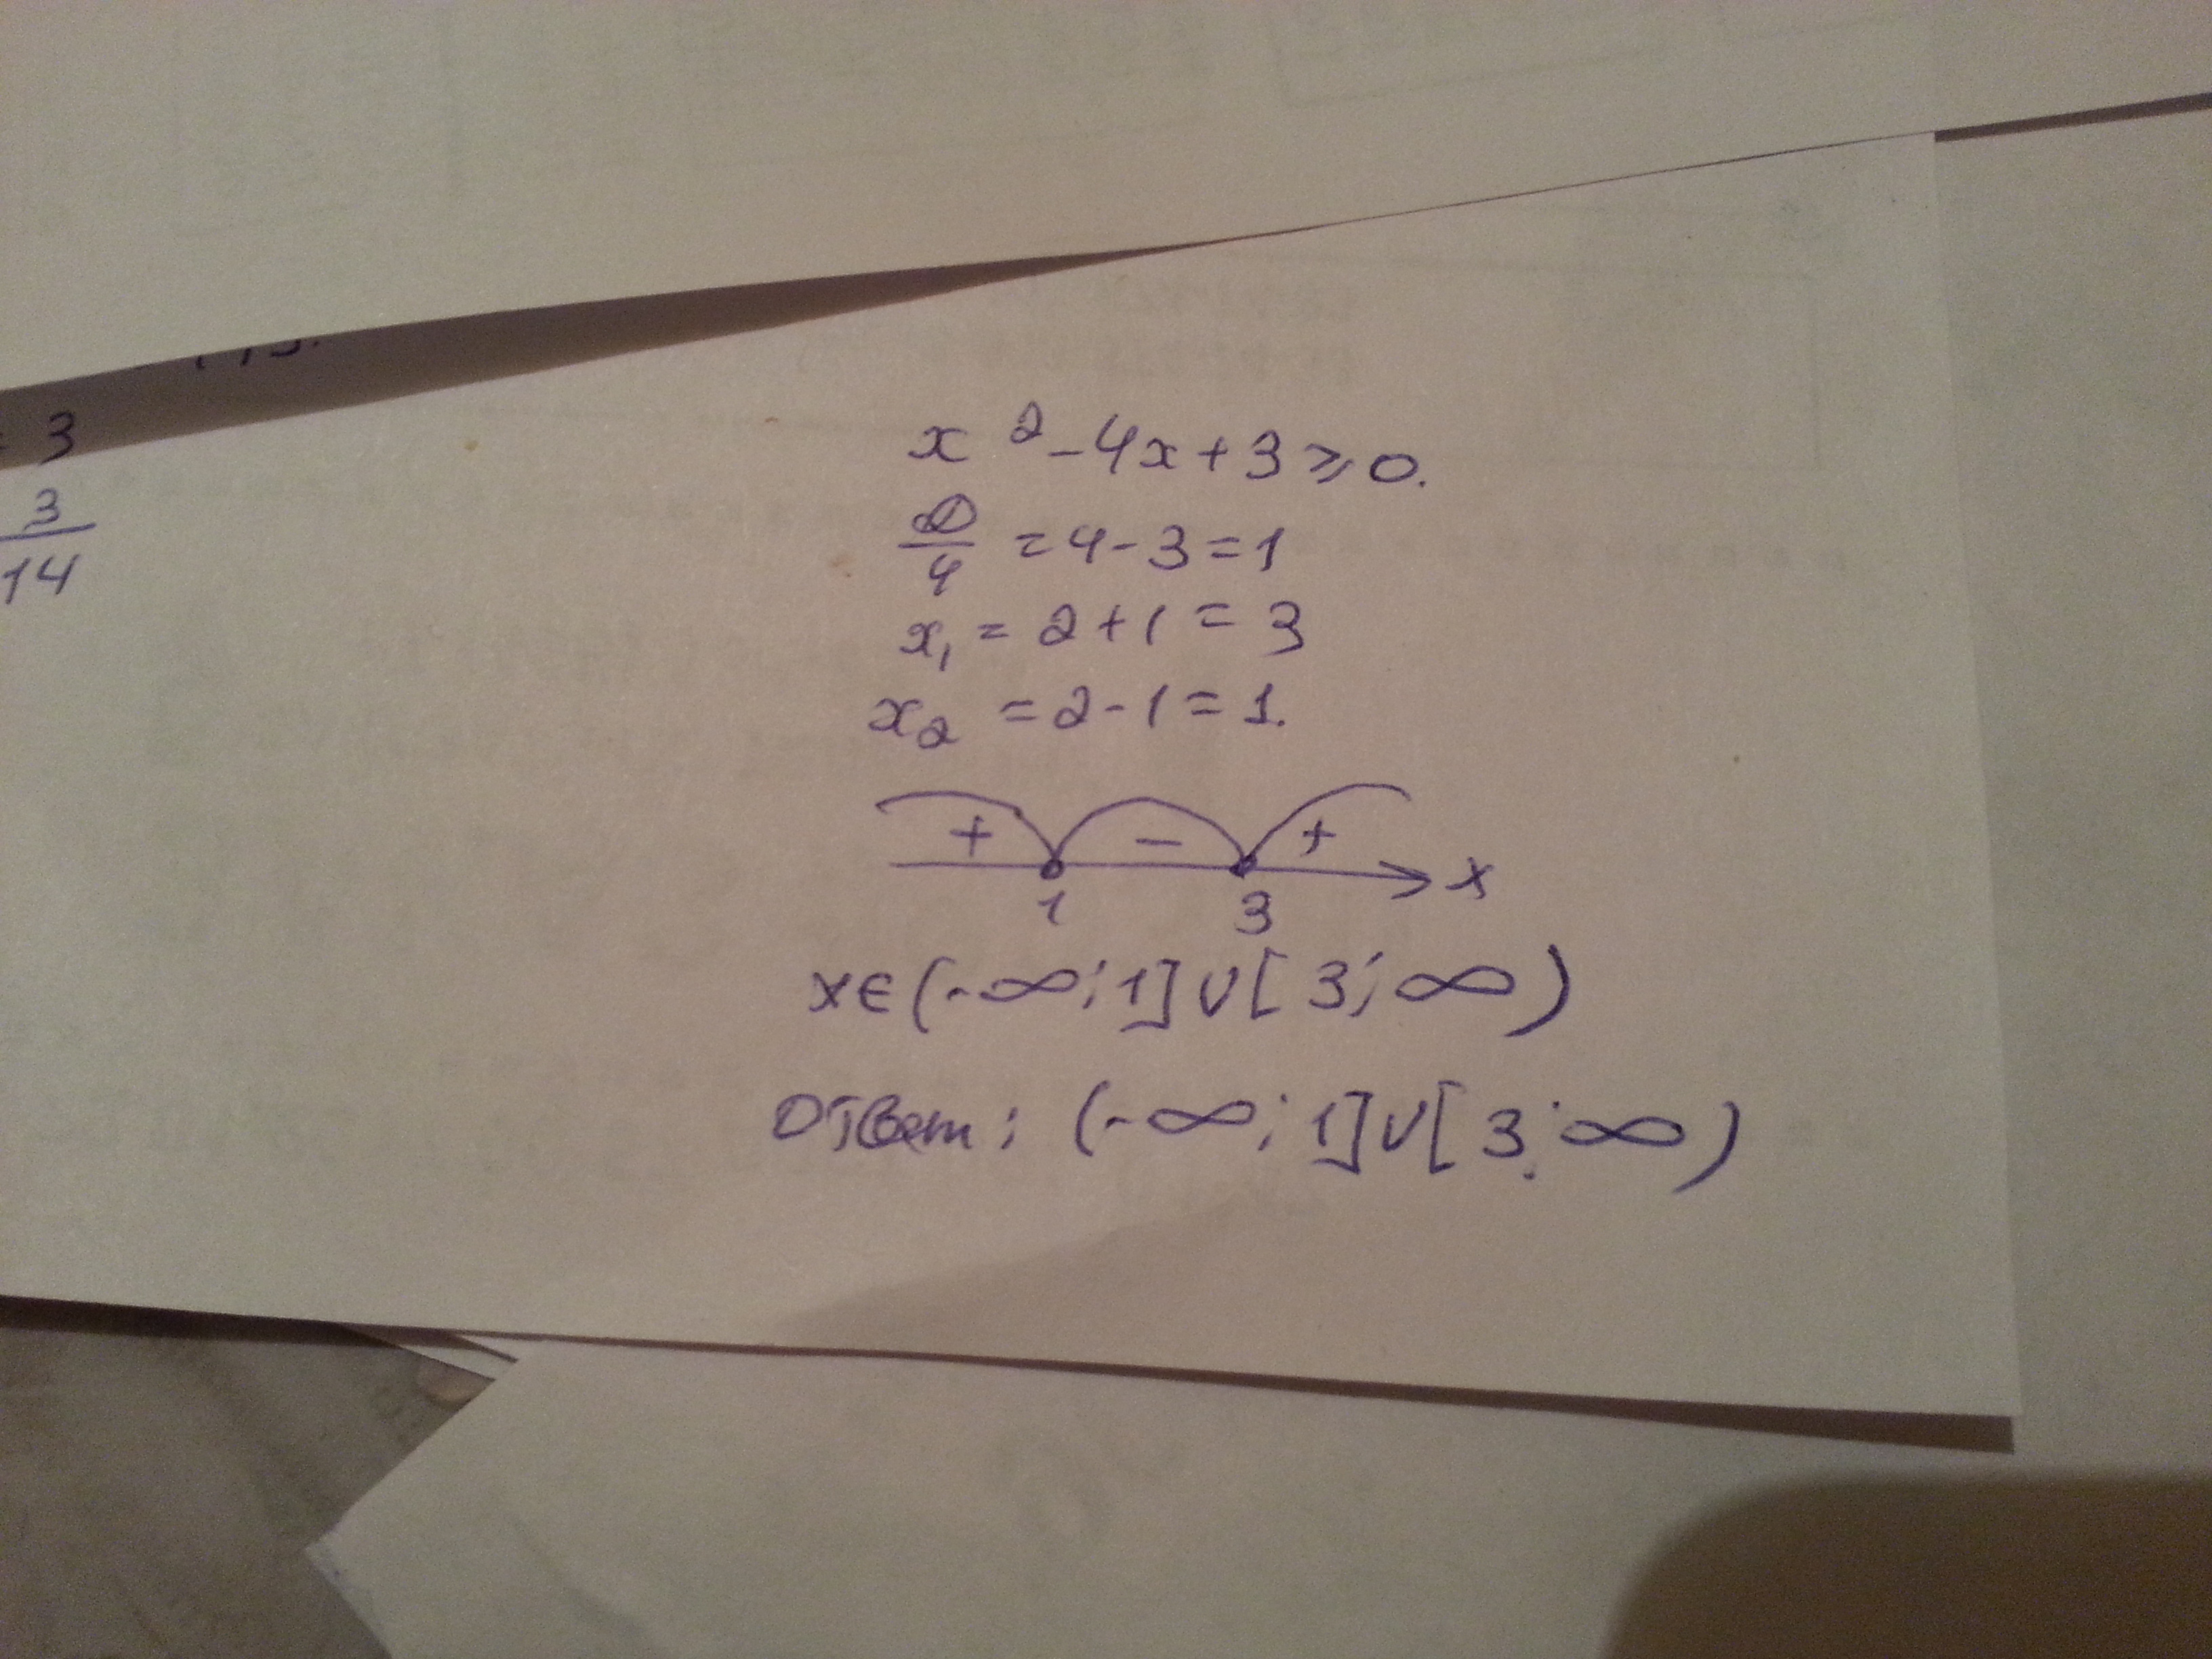 3
3
14
x² - 4x + 3 ⩾ 0.
D/4 = 4 - 3 = 1
x₁ = 2 + 1 = 3
x₂ = 2 - 1 = 1.
+ - +
1 3 x
x∈(-∞; 1]∪[3; ∞)
Ответ: (-∞; 1]∪[3; ∞)